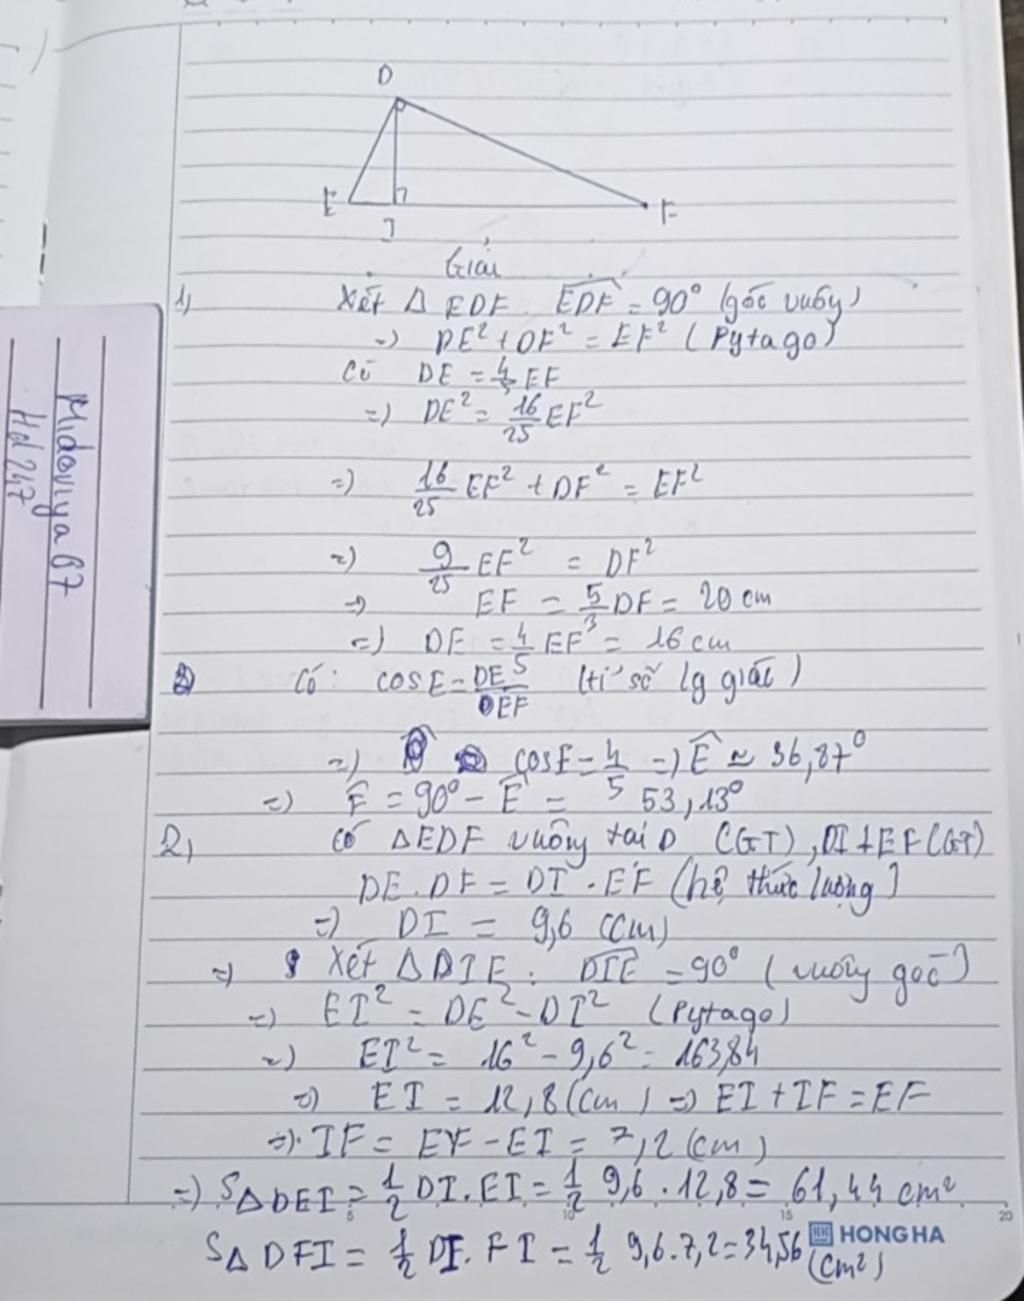 D
E
I
F
Giải
1, Xét Δ EDF. EDF = 90° (góc vuông)
=) DE² + DF² = EF² (Pytago)
Có DE = 4/5 EF
=) DE² = 16/25 EF²
=) 16/25 EF² + DF² = EF²
=) 9/25 EF² = DF²
=) EF = 5/3 DF = 20 cm
=) DE = 4/5 EF = 16 cm
Có: cos E = DE/EF (tỉ số lg giác)
=) cosE = 4/5 =) E ≈ 36,87°
=) F = 90° - E = 53,13°
2, Có ΔEDF vuông tại D (GT), DI ⊥ EF (GT)
DE . DF = DI . EF (hệ thức lượng)
=) DI = 9,6 (cm)
=) Xét Δ DIE : DIE = 90° (vuông góc)
=) EI² = DE² - DI² (Pytago)
=) EI² = 16² - 9,6² = 163,84
=) EI = 12,8 (cm) =) EI + IF = EF
=) IF = EF - EI = 7,2 (cm)
=) SΔDEI = 1/2 DI . EI = 1/2 9,6 . 12,8 = 61,44 cm²
SΔDFI = 1/2 DI . FI = 1/2 9,6 . 7,2 = 34,56 (cm²)
5 10 15 20
HONG HA
Midoriya07
Hd247